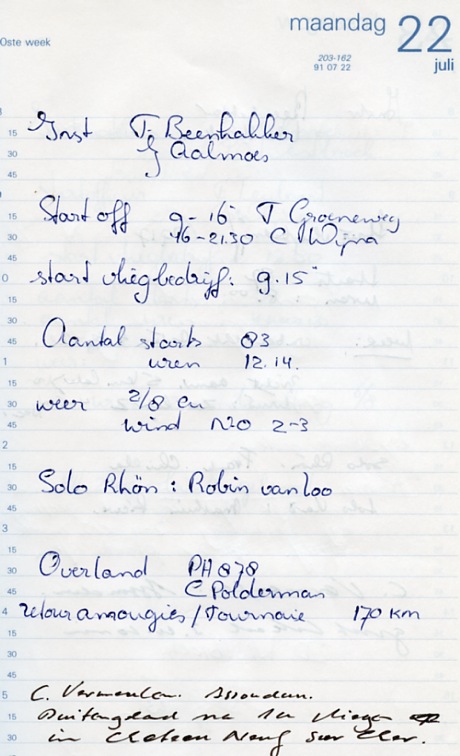 maandag 22
0ste week
203-162
91 07 22
juli
15 Inst T. Beenhakker
30 J Aalmoes
45
15 Start off 9-16 T Groeneweg
30 16-21.30 C Wijna
45
0 start vliegbedrijf: 9.15
15
30
45 Aantal starts 83
1 uren 12.14.
15
30 weer 2/8 cu
45 wind NNO 2-3
2
15
30 Solo Rhön : Robin van Loo
45
3
15
30 Overland PH 878
45 C Polderman
4 retour amougies / Tournaie 170 KM
15
30
45
5 C. Vermeulen.
15 na vliegen
30 in sur